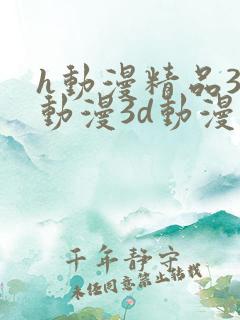 h動漫精品3
動漫3d動漫
千年静守
未经同意禁止转载